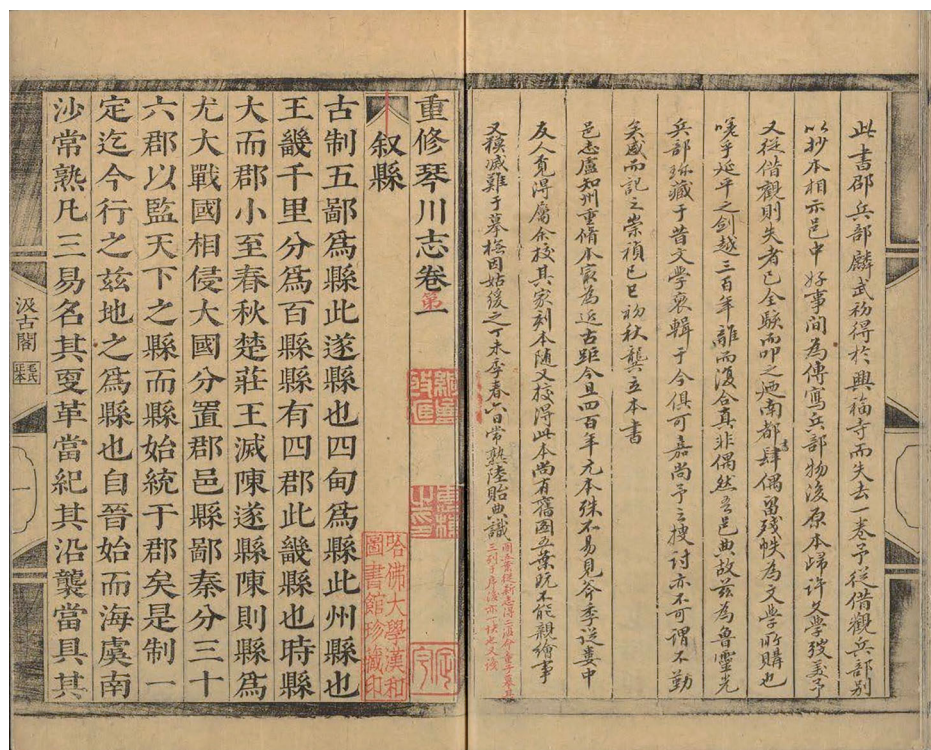 此書邵兵部麟武初得於興福寺而失去一卷予從借觀兵部別
以抄本相示邑中好事間為傳寫兵部物後原本歸許文學予
又從借觀則失者已全驗而叩之迺南都肆偶留殘帙為文學所購也
嗟乎延平之劍越三百年離而復合真非偶然吾邑典故茲為魯靈光
兵部珍藏于昔文學裒輯于今俱可嘉尚予之搜討亦不可謂不勤
矣感而記之崇禎己巳初秋龔立本書
邑志盧知州重脩本寂為近古距今且四百年元本殊不易見今季從婁中
友人覓得屬余校其家刻本隨又校得此本尚有舊圖五葉既不能親繪事
又積滅難于摹橅因姑後之丁未季春六日常熟陸貽典識
重修琴川志卷第一
叙縣
古制五鄙爲縣此遂縣也四甸爲縣此州縣也
王畿千里分爲百縣縣有四郡此畿縣也時縣
大而郡小至春秋楚莊王滅陳遂縣陳則縣爲
尤大戰國相侵大國分置郡邑縣鄙秦分三十
六郡以監天下之縣而縣始統于郡矣是制一
定迄今行之茲地之爲縣也自晉始而海虞南
沙常熟凡三易名其更革當紀其沿襲當具其
汲古閣
毛氏
正本
一
哈佛大學漢和
圖書館珍藏印